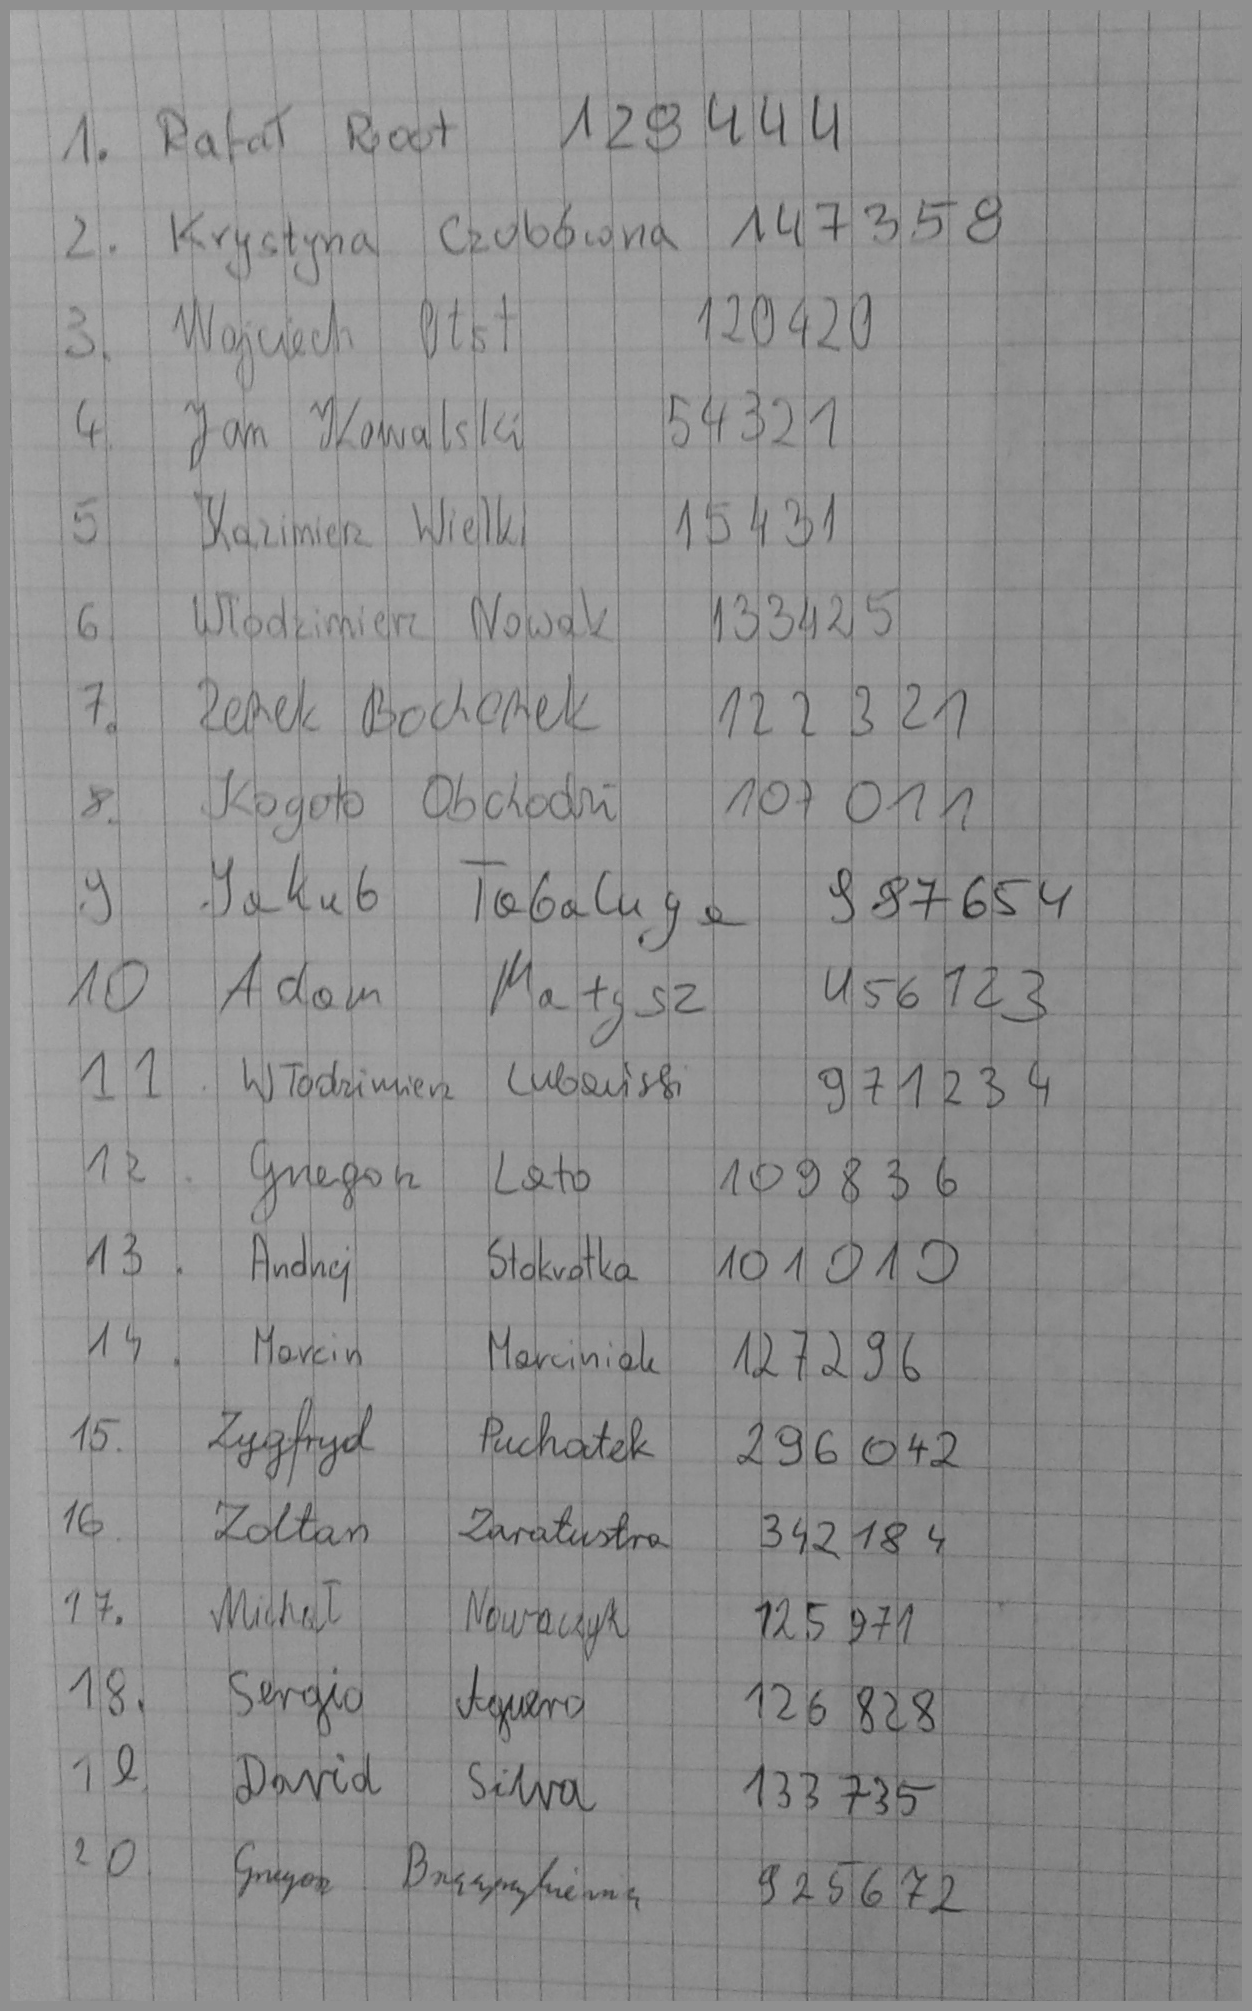 1. Rafał Root 129444
2. Krystyna Czubówna 147358
3. Wojciech Otst 120420
4. Jan Kowalski 54321
5 Kazimierz Wielki 15431
6 Włodzimierz Nowak 133425
7. Zenek Bochenek 122321
8. Kogoto Obchodzi 107011
9 Jakub Tabaluga 987654
10 Adam Małysz 456123
11. Włodzimierz Lubański 971234
12. Grzegorz Lato 109836
13. Andrzej Stokrotka 101010
14. Marcin Marciniak 127296
15. Zygfryd Puchatek 296042
16. Zoltan Zaratustra 342184
17. Michał Nowaczyk 125971
18. Sergio Aguero 126828
19. David Silva 133735
20. Grzegorz 925672